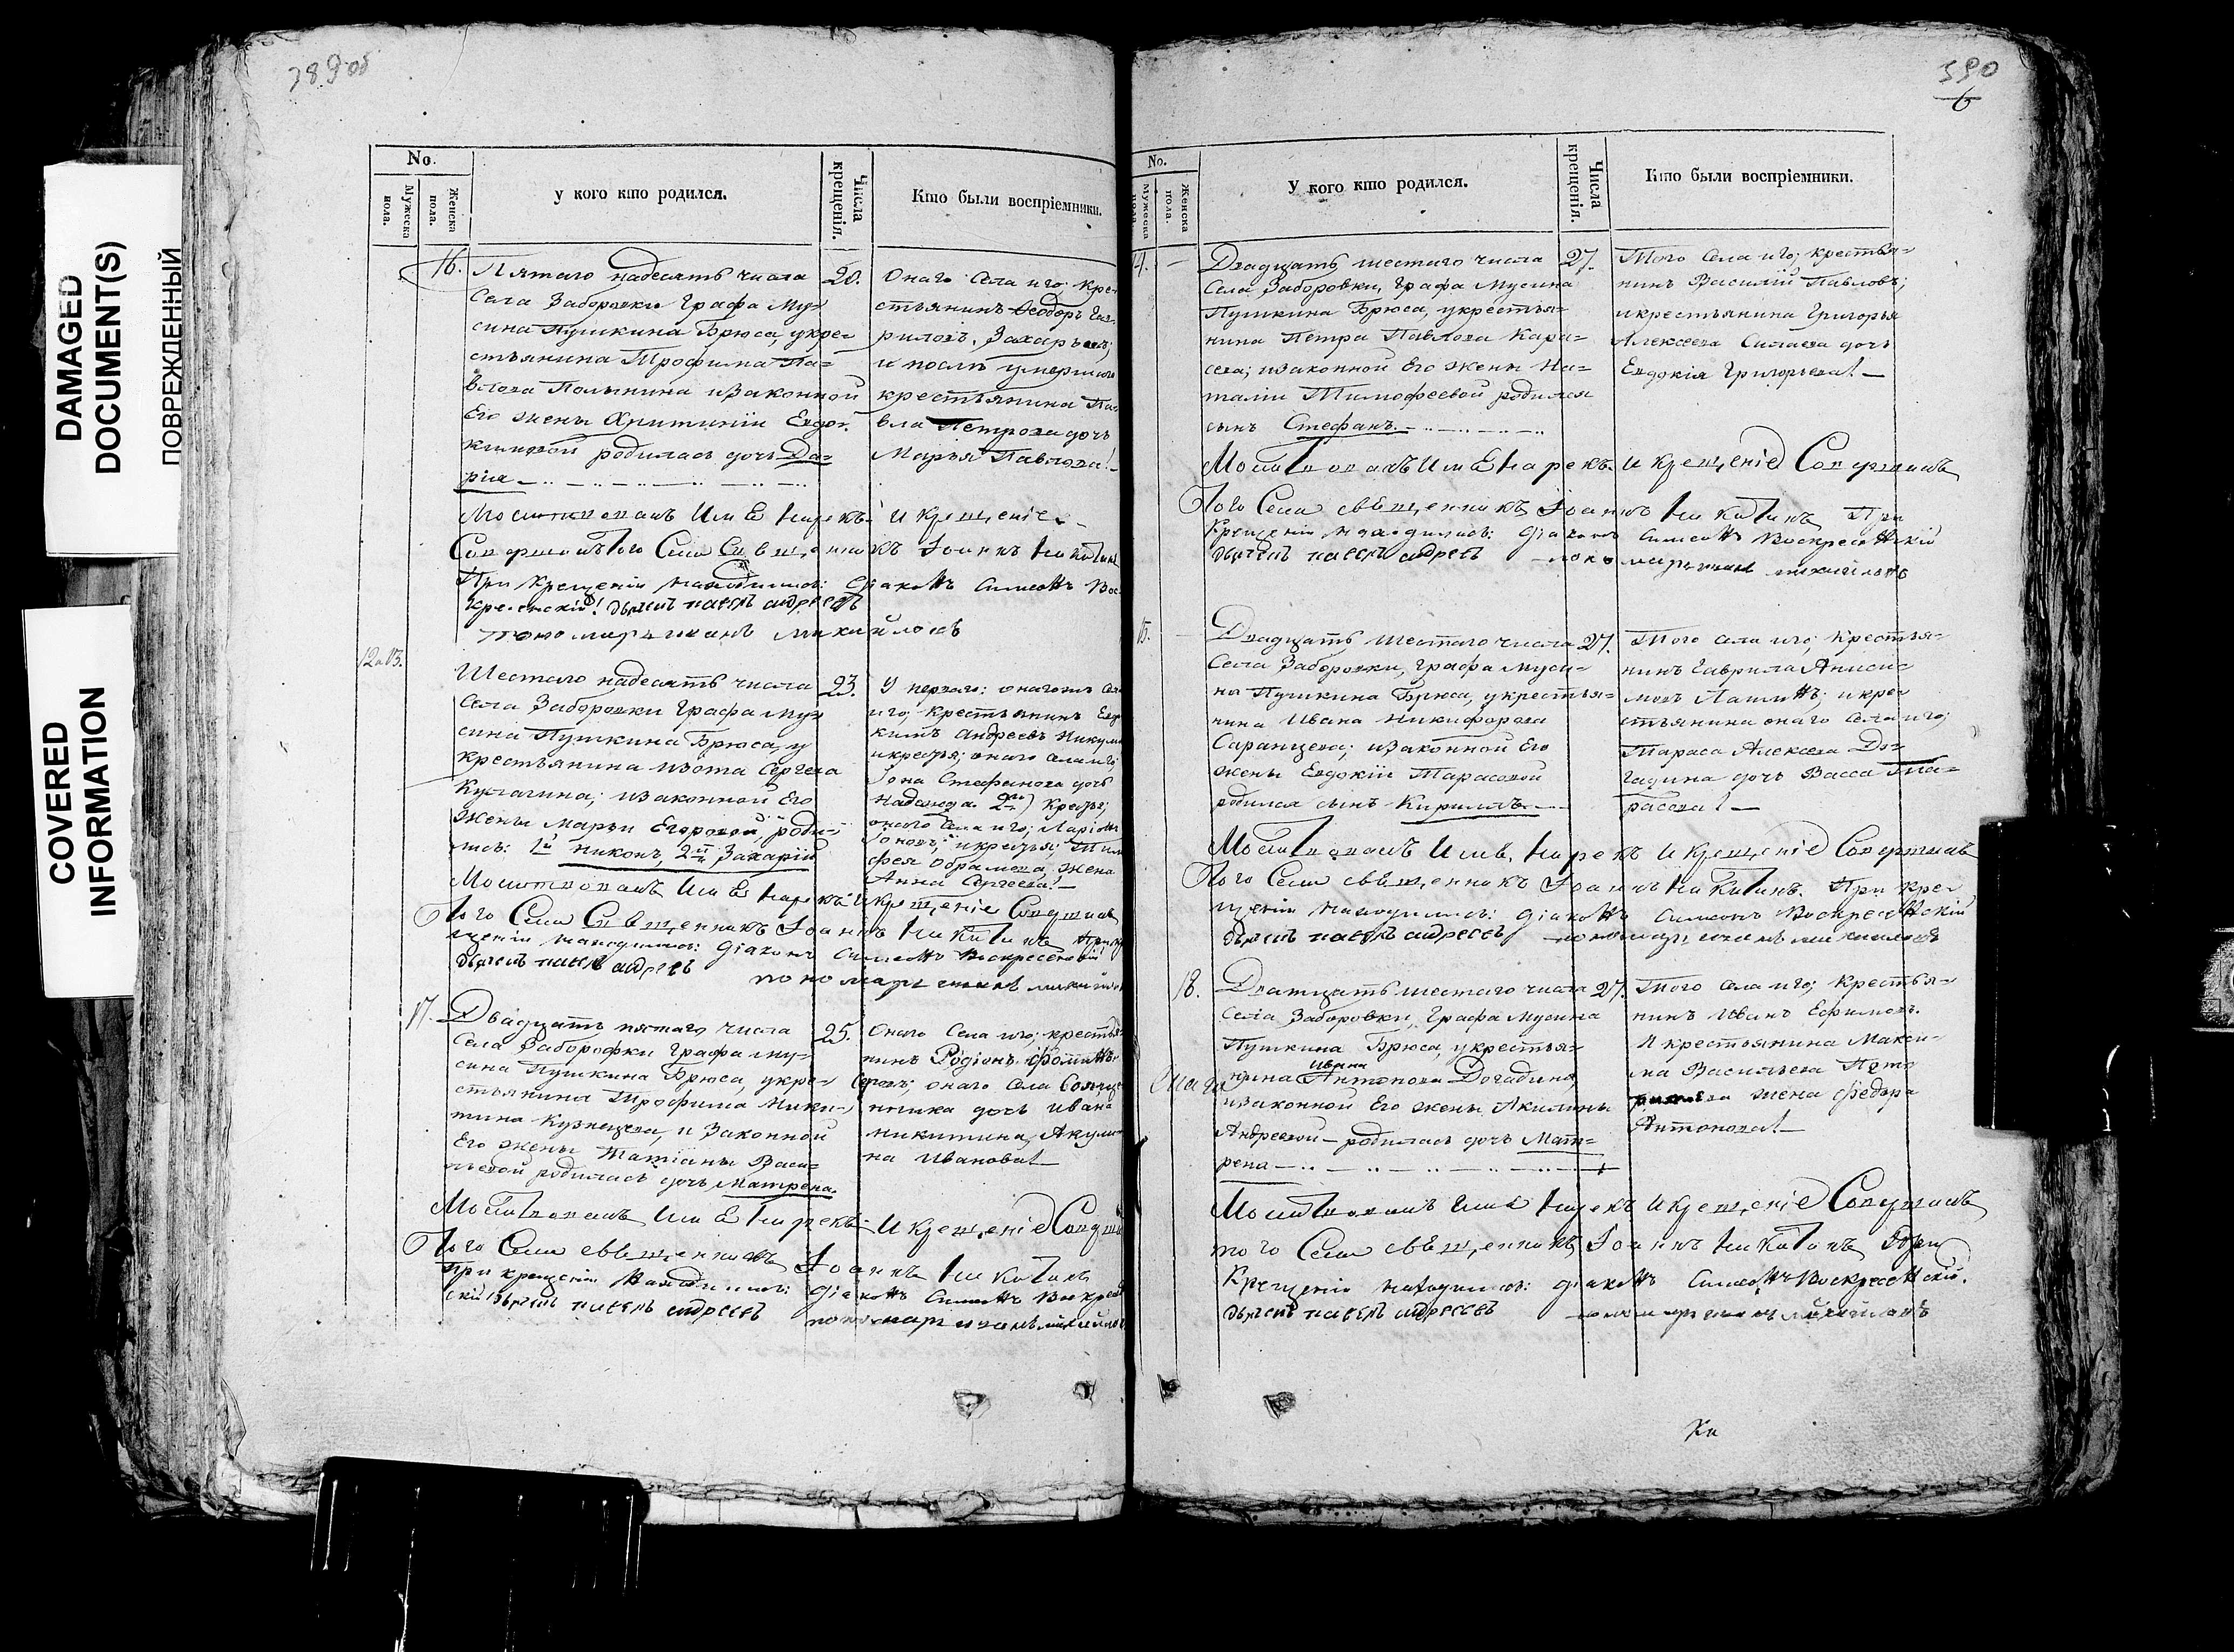 DAMAGED
DOCUMENT(S)
ПОВРЕЖДЕННЫЙ
COVERED
INFORMATION
389 об
No.
Мужеска пола.
Женска пола.
у кого кто родился.
Числа крещенія.
Кто были воспріемники.
16.
Пятаго надесять числа
Села Заборовки Графа Му-
сина Пушкина Брюса, у кре-
стьянина Трофима Па-
влова Полынина и законной
Его жены Христинии Евдо-
кимовой родилась дочь Да-
рія
20.
Онаго Села иго; кре-
стьянинъ Феодоръ Гав-
риловъ Захарьевъ;
и послѣ умершаго
крестьянина Па-
вла Петрова дочь
Марья Павлова
Молитвовалъ Имѣ нарекъ и крещеніе
Совершилъ того Села Священникъ Іоаннъ Никитинъ
При Крещеніи находились: Діаконъ Симеонъ Вос-
кресенскій дьячекъ павелъ андреевъ
пономарь иванъ михайловъ
12 и 13.
Шестаго надесять числа
Села Заборовки Графа Му-
сина Пушкина Брюса, у
крестьянина Изота Сергеева
Кулагина; и законной Его
жены Марьи Егоровой, роди-
лись: 1й Никонъ, 2й Захарій
23.
У перваго: онаго
иго; крестьянинъ
кимъ Андреевъ
онаго села иго;
Іона Стефанова дочь
Надежда 2
онаго Села иго; Ларіонъ
Іоновъ;
фея Абрамова жена
Анна Сергеева
Молитвовалъ Имѣ нарекъ и крещеніе Совершилъ
того Села Священникъ Іоаннъ Никитинъ При кре-
щеніи находились: Діаконъ Симеонъ Воскресенскій
дьячекъ павелъ андреевъ пономарь иванъ михайловъ
17.
Двадцать пятаго числа
Села Заборофки Графа Му-
сина Пушкина Брюса, у кре-
стьянина Трофима Ники-
тина Кузнецова, и Законной
Его жены Татіаны Васи-
льевой родилась дочь Матрена.
25.
Онаго Села иго; крестья-
нинъ Родіонъ Фоминъ
онаго Села Священ-
ника дочь Ивана
Никитина, Акули-
на Иванова
Молитвовалъ Имѣ нарекъ и крещеніе Соверши
того Села священникъ Іоаннъ Никитинъ
При крещеніи находились: Діаконъ Симеонъ Воскресен
скій дьячекъ павелъ андреевъ пономарь иванъ михайлов
390
6
No.
Мужеска пола.
Женска пола.
У кого кто родился.
Числа крещенія.
Кто были воспріемники.
14.
Двадцать шестаго числа
Села Заборовки, Графа Мусина
Пушкина Брюса, у крестья-
нина Петра Павлова Кара-
сева; и законной Его жены На-
таліи Тимофеевой родился
сынъ Стефанъ.
27.
Того Села иго; крестья-
нинъ Василій Павловъ;
и крестьянина Григорья
Алексеева Силаева дочь
Евдокія Григорьева
Молитвовалъ Имѣ нарекъ и крещеніе Совершилъ
Того Села священникъ Іоаннъ Никитинъ При
Крещеніи находились: Діаконъ Симеонъ Воскресенскій
дьячекъ павелъ андреевъ пономарь иванъ михайловъ
15.
Двадцать шестаго числа
Села Заборовки, Графа Муси-
на Пушкина Брюса, у крестья-
нина Ивана Никифорова
Саранцева; и законной Его
жены Евдокіи Тарасовой
родился сынъ Кириллъ
27.
Того села иго; крестья-
нинъ Гаврила Аниси-
мовъ и кре-
стьянина онаго Села иго;
Тараса Алексеева До-
гадина дочь Васса Та-
расова
Молитвовалъ Имѣ нарекъ и крещеніе Совершилъ
Того Села священникъ Іоаннъ Никитинъ. При кре-
щеніи находились: Діаконъ Симеонъ Воскресенскій
дьячекъ павелъ андреевъ пономарь иванъ михайловъ
18.
Дватцать шестаго числа
Села Заборовки, Графа Мусина
Пушкина Брюса, у крестья-
Ивана
нина Антонова Догадина,
и законной Его жены Акилины
Андреевой родилась дочь Мат-
рена
27.
Того села иго; крестья-
нинъ Иванъ Ефимовъ.
И крестьянина Макси-
ма Васильева
жена Федора
Антонова
Молитвовалъ имѣ нарекъ и крещеніе Совершилъ
того Села священникъ Іоаннъ Никитинъ При
Крещеніи находились: Діаконъ Симеонъ Воскресенскій.
дьячекъ павелъ андреевъ пономарь иванъ михайловъ